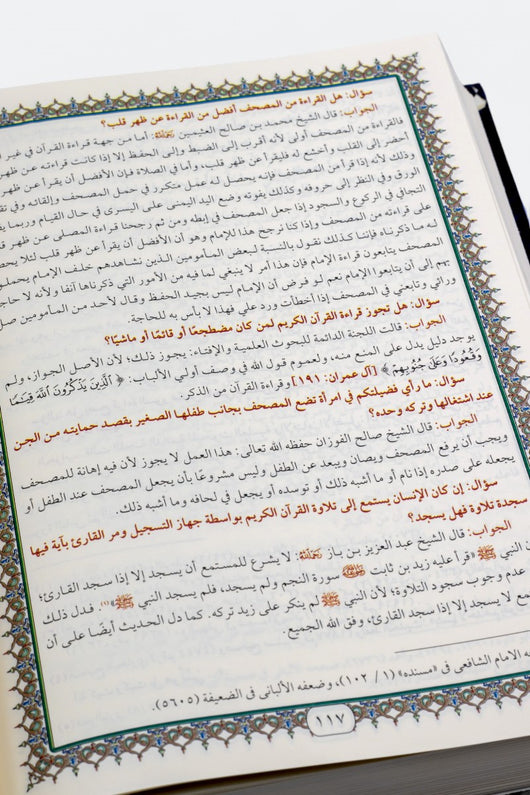 سؤال: هل القراءة من المصحف أفضل من القراءة عن ظهر قلب؟
الجواب: قال الشيخ محمد بن صالح العثيمين رحمه الله: أما من جهة قراءة القرآن في غير
فالقراءة من المصحف أولى لأنه أقرب إلى الضبط وإلى الحفظ إلا إذا كانت قراءته عن ظهر
أحضر إلى القلب وأخشع له فليقرأ عن ظهر قلب. وأما في الصلاة فإن الأفضل أن يقرأ عن ظهر
وذلك لأنه إذا قرأ من المصحف فإنه يحصل له عمل متكرر في حمل المصحف وإلقائه وفي تقليب
الورق وفي النظر إلى حروفه وكذلك يفوته وضع اليد اليمنى على اليسرى في حال القيام وربما
التجافي في الركوع والسجود إذا جعل المصحف في إبطه ومن ثم رجحنا قراءة المصلي عن ظهر
على قراءته من المصحف وإذا كنا نرجح هذا للإمام وهو أن الأفضل أن يقرأ عن ظهر قلب لئلا يحصل
له ما ذكرناه فإننا كذلك نقول بالنسبة لبعض المأمومين الذين نشاهدهم خلف الإمام يحملون
المصحف يتابعون قراءة الإمام فإن هذا أمر لا ينبغي لما فيه من الأمور التي ذكرناها آنفا ولأنه لا حاجة
بهم إلى أن يتابعوا الإمام نعم لو فرض أن الإمام ليس بجيد الحفظ وقال لأحد من المأمومين صل
ورائي وتابعني في المصحف إذا أخطأت ورد علي فهذا لا بأس به للحاجة.
سؤال: هل تجوز قراءة القرآن الكريم لمن كان مضطجعًا أو قائمًا أو ماشيًا؟
الجواب: قالت اللجنة الدائمة للبحوث العلمية والإفتاء: يجوز ذلك؛ لأن الأصل الجواز، ولم
يوجد دليل يدل على المنع منه، ولعموم قول الله في وصف أولي الألباب: ﴿ الَّذِينَ يَذْكُرُونَ اللَّهَ قِيَامًا
وَقُعُودًا وَعَلَى جُنُوبِهِمْ ﴾ [آل عمران: ١٩١] وقراءة القرآن من الذكر.
سؤال: ما رأي فضيلتكم في امرأة تضع المصحف بجانب طفلها الصغير بقصد حمايته من الجن
عند اشتغالها وتركه وحده؟
الجواب: قال الشيخ صالح الفوزان حفظه الله تعالى: هذا العمل لا يجوز لأن فيه إهانة للمصحف
ويجب أن يرفع المصحف ويصان ويبعد عن الطفل وليس مشروعًا بأن يجعل المصحف عند الطفل أو
يجعله على صدره إذا نام أو ما أشبه ذلك أو توسده أو يجعل في لحافه وما أشبه ذلك.
سؤال: إن كان الإنسان يستمع إلى تلاوة القرآن الكريم بواسطة جهاز التسجيل ومر القارئ بآية فيها
سجدة تلاوة فهل يسجد؟
الجواب: قال الشيخ عبد العزيز بن باز رحمه الله: لا يشرع للمستمع أن يسجد إلا إذا سجد القارئ؛
النبي ﷺ «قرأ عليه زيد بن ثابت رضي الله عنه سورة النجم ولم يسجد، فلم يسجد النبي ﷺ»(١). فدل ذلك
عدم وجوب سجود التلاوة؛ لأن النبي ﷺ لم ينكر على زيد تركه. كما دل الحديث أيضًا على أن
لا يسجد إلا إذا سجد القارئ، وفق الله الجميع.
الإمام الشافعي في «مسنده» (١/ ١٠٢)، وضعفه الألباني في الضعيفة (٥٦٠٥).
١١٧